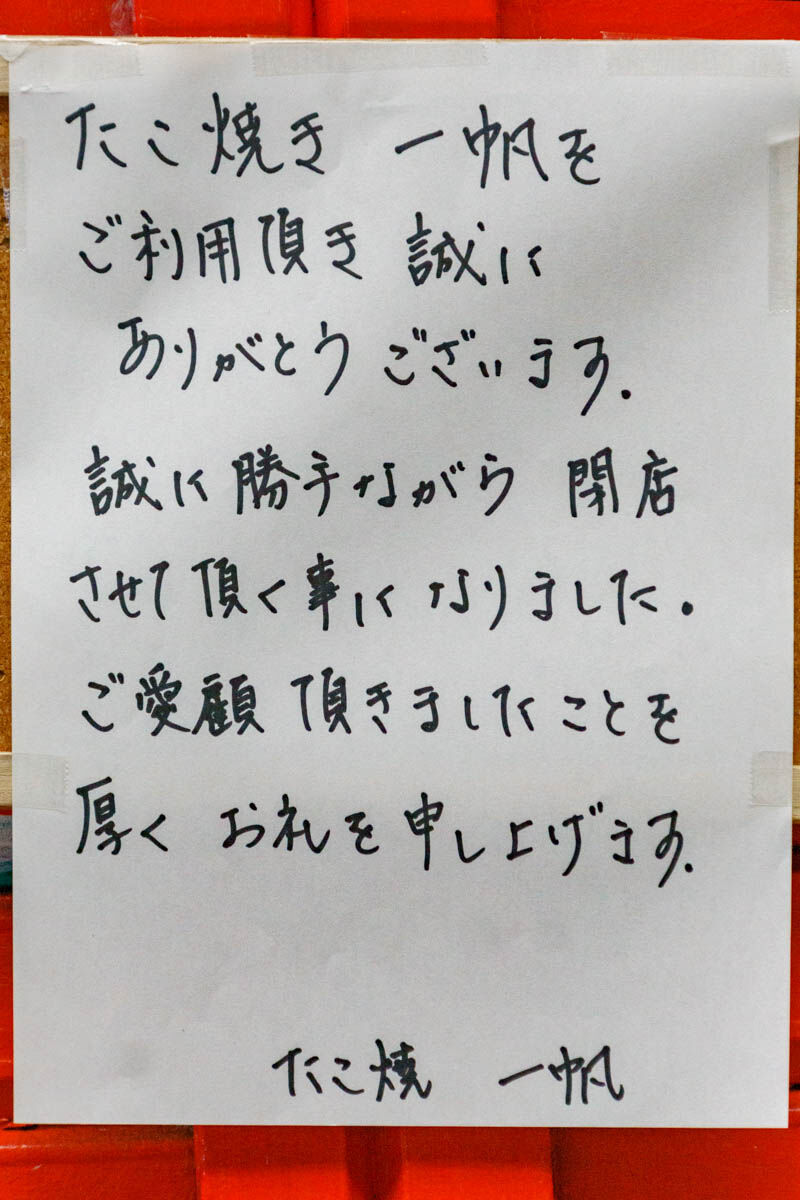 たこ焼き 一帆を
ご利用頂き 誠に
ありがとう ございます.
誠に 勝手ながら 閉店
させて 頂く事に なりました.
ご愛顧 頂きましたことを
厚く お礼を 申し上げます.
たこ焼 一帆